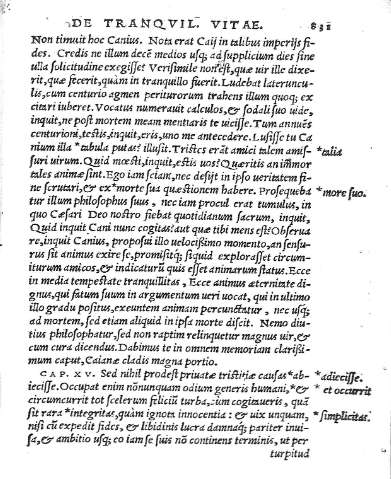 DE TRANQVIL. VITAE. 831
Non timuit hoc Canius. Nota erat Caij in talibus imperijs fi-
des. Credis ne illum decē medios usq; ad supplicium dies sine
ulla solicitudine exegisse? Verisimile non est, quæ uir ille dixe-
rit, quæ fecerit, quàm in tranquillo fuerit. Ludebat lateruncu-
lis, cum centurio agmen periturorum trahens illum quoq; ex
citari iuberet. Vocatus numerauit calculos, & sodali suo uide,
inquit, ne post mortem meam mentiaris te uicisse. Tum annuēs
centurioni, testis, inquit, eris, uno me antecedere. Lusisse tu Ca
nium illa *tabula putas? illusit. Tristes erāt amici talem amis- *talia
suri uirum. Quid mœsti, inquit, estis uos? Quæritis an immor
tales animæ sint. Ego iam sciam, nec desijt in ipso ueritatem fi-
ne scrutari, & ex*morte sua quæstionem habere. Prosequeba *more suo.
tur illum philosophus suus, nec iam procul erat tumulus, in
quo Cæsari Deo nostro fiebat quotidianum sacrum, inquit,
Quid inquit Cani nunc cogitas? aut quæ tibi mens est? Obserua
re, inquit Canius, proposui illo uelocissimo momento, an sensu-
rus sit animus exire se, promisitq; siquid explorasset circum-
iturum amicos, & indicaturū quis esset animarum status. Ecce
in media tempestate tranquillitas, Ecce animus æternitate di-
gnus, qui fatum suum in argumentum ueri uocat, qui in ultimo
illo gradu positus, exeuntem animam percunctatur, nec usq;
ad mortem, sed etiam aliquid in ipsa morte discit. Nemo diu-
tius philosophatur, sed non raptim relinquetur magnus uir, &
cum cura dicendus. Dabimus te in omnem memoriam clarissi-
mum caput, Caianæ cladis magna portio.
CAP. XV. Sed nihil prodest priuatæ tristitiæ causas *ab- *adiecisse.
iecisse. Occupat enim nōnunquam odium generis humani, *& * et occurrit
circumcurrit tot scelerum feliciū turba, cum cogitaueris, quā
sit rara *integritas, quàm ignota innocentia: & uix unquam, *simplicitas.
nisi cū expedit fides, & libidinis lucra damnaq; pariter inui-
sa, & ambitio usq; eo iam se suis nō continens terminis, ut per
turpitud